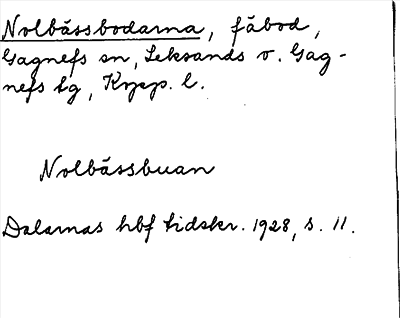 Nolbässbodarna, fäbod,
Gagnefs sn, Leksands o. Gag-
nefs tg, Kopp. l.
Nolbässbuan
Dalarnas hbf tidskr. 1928, s. 11.